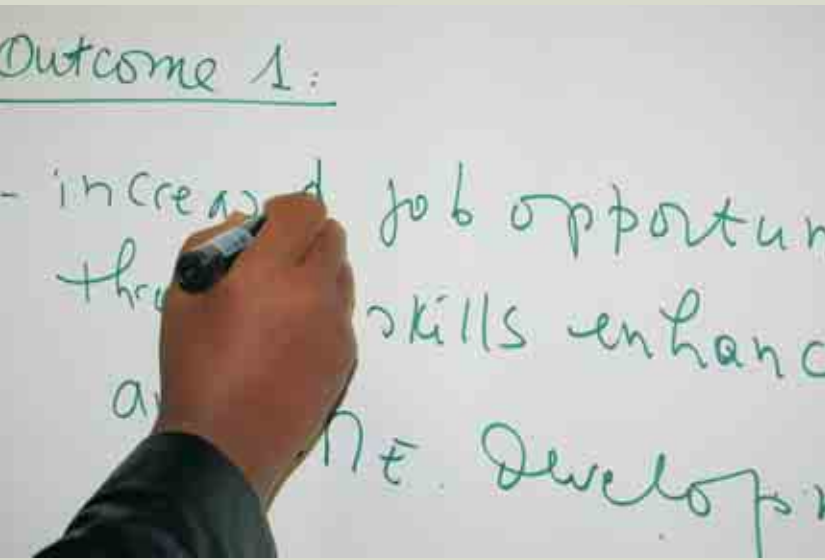 Outcome 1:
- increased job opportun
thro skills enhanc
a NE. Develop